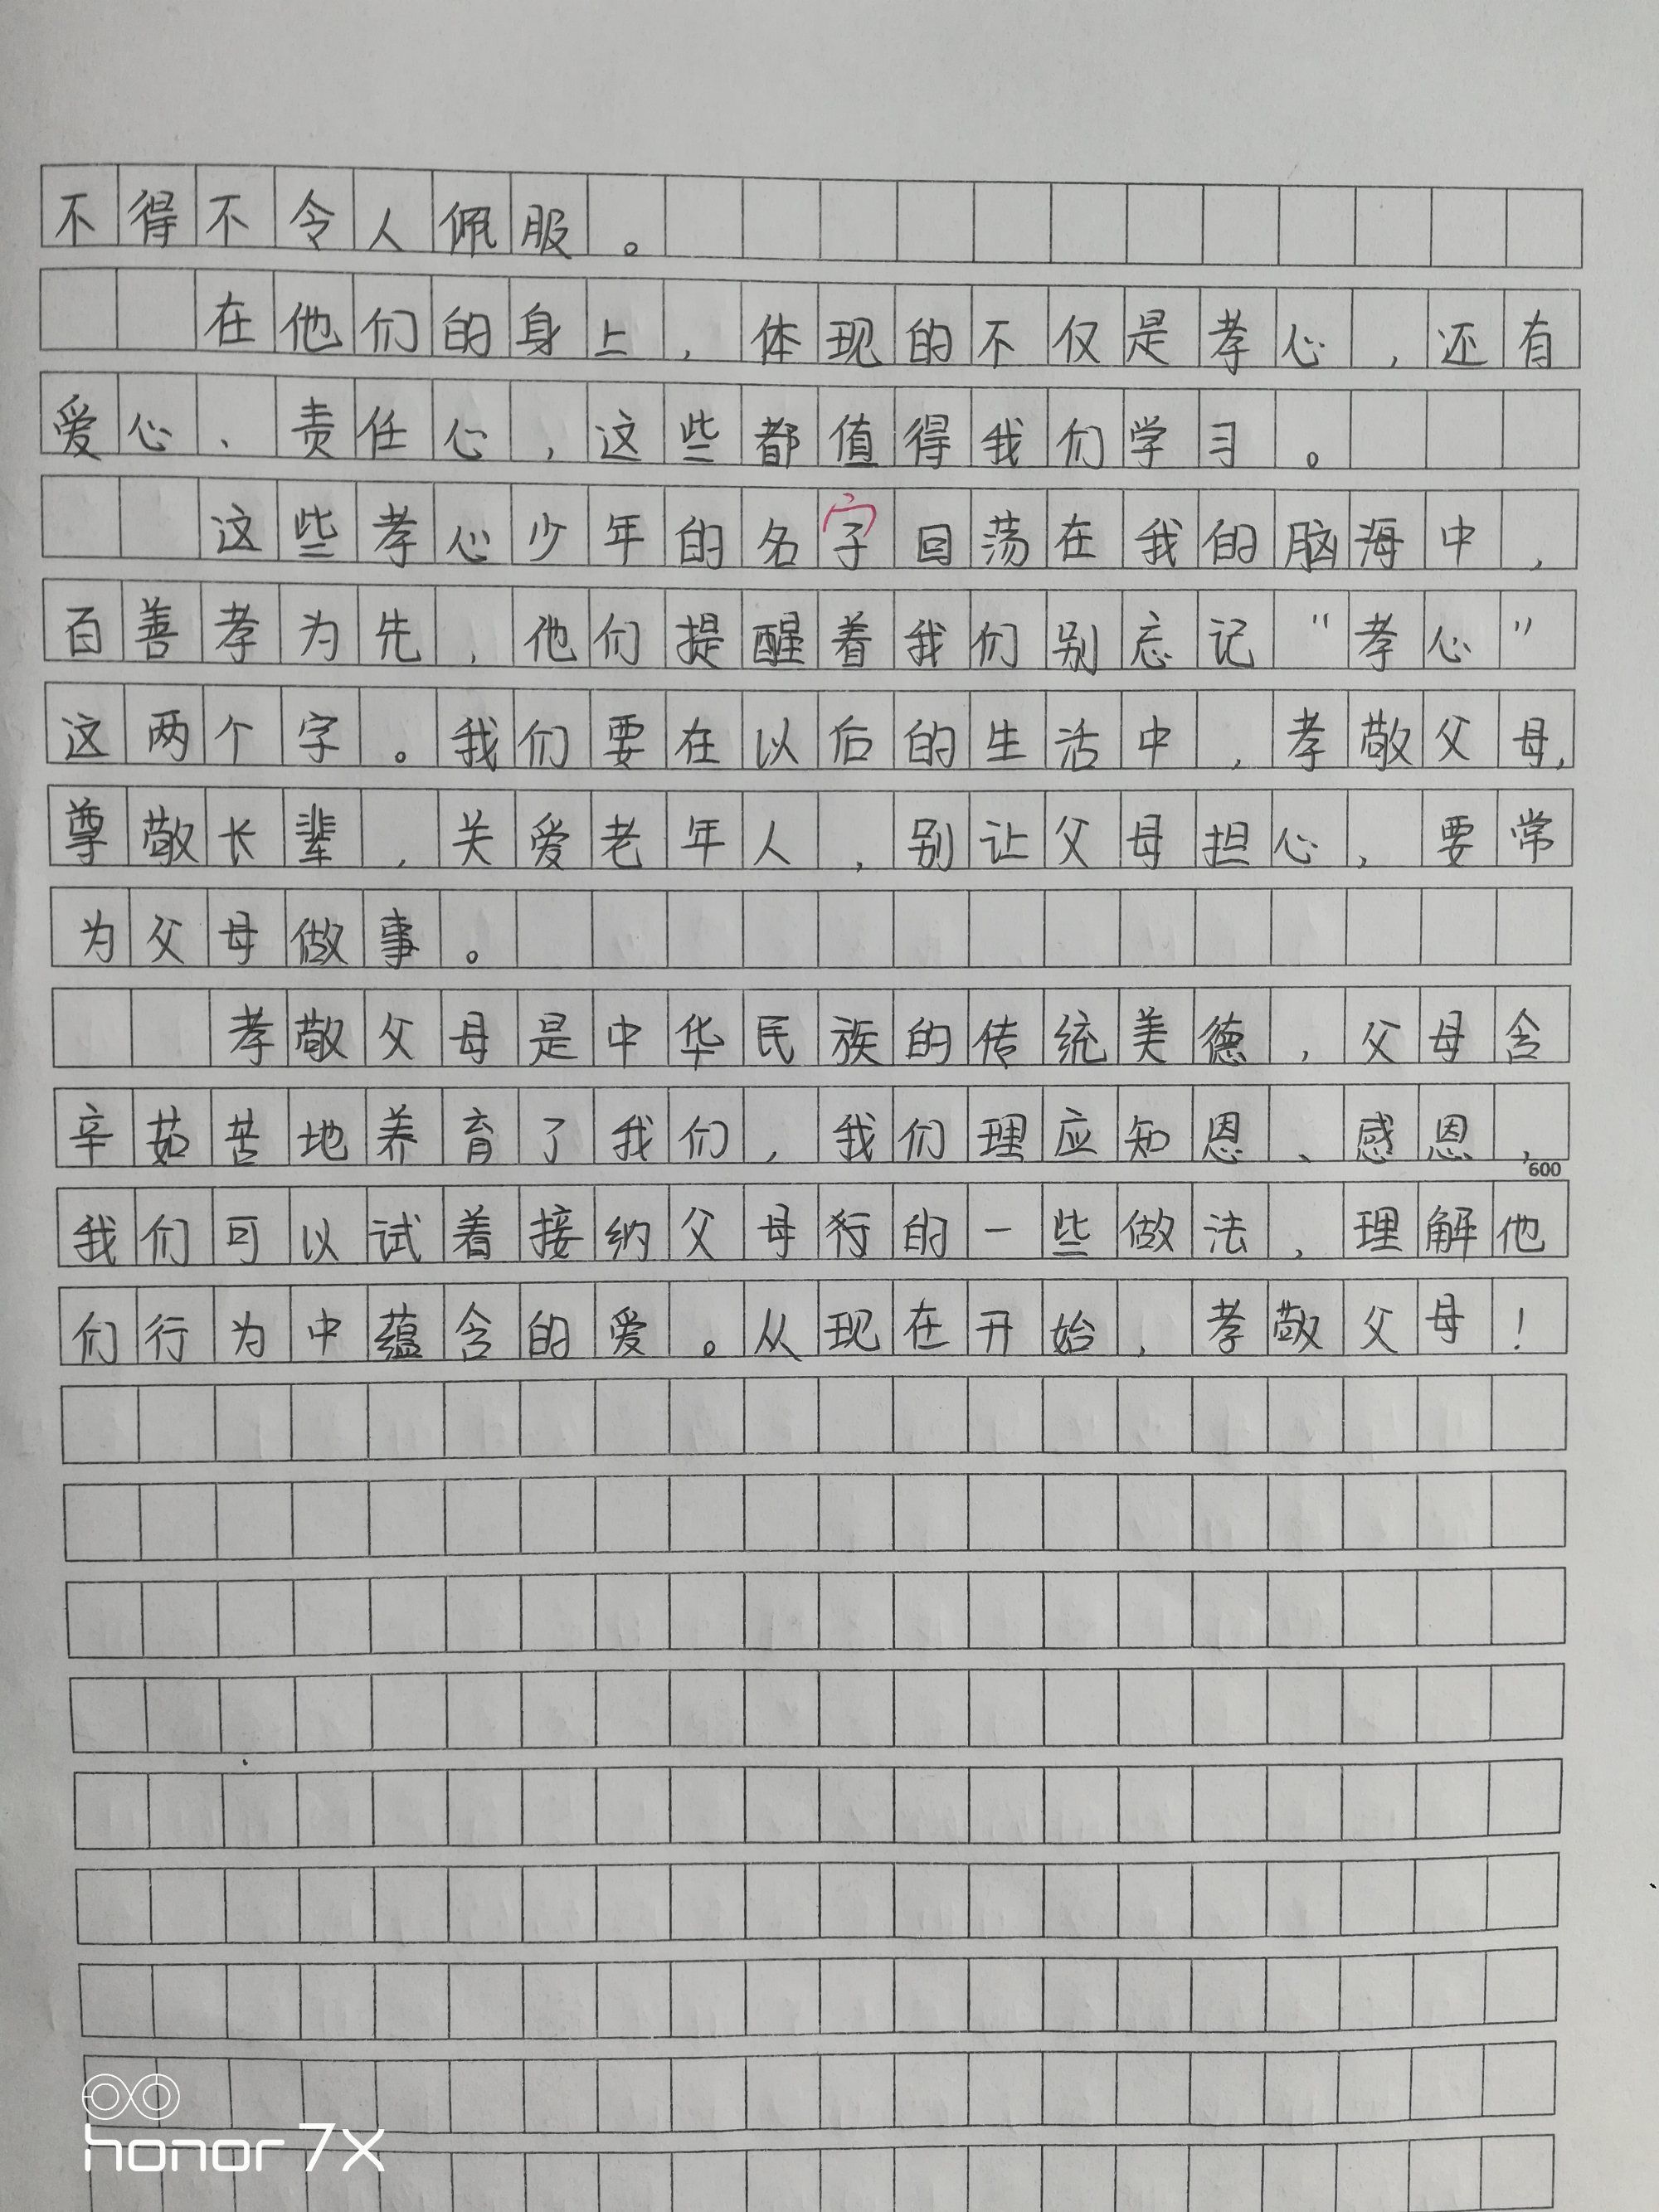 不得不令人佩服。
在他们的身上，体现的不仅是孝心，还有
爱心、责任心，这些都值得我们学习。
这些孝心少年的名字回荡在我的脑海中，
百善孝为先，他们提醒着我们别忘记“孝心”
这两个字。我们要在以后的生活中，孝敬父母，
尊敬长辈，关爱老年人，别让父母担心，要常
为父母做事。
孝敬父母是中华民族的传统美德，父母含
辛茹苦地养育了我们，我们理应知恩、感恩，
600
我们可以试着接纳父母的一些做法，理解他
们行为中蕴含的爱。从现在开始，孝敬父母！
honor 7X